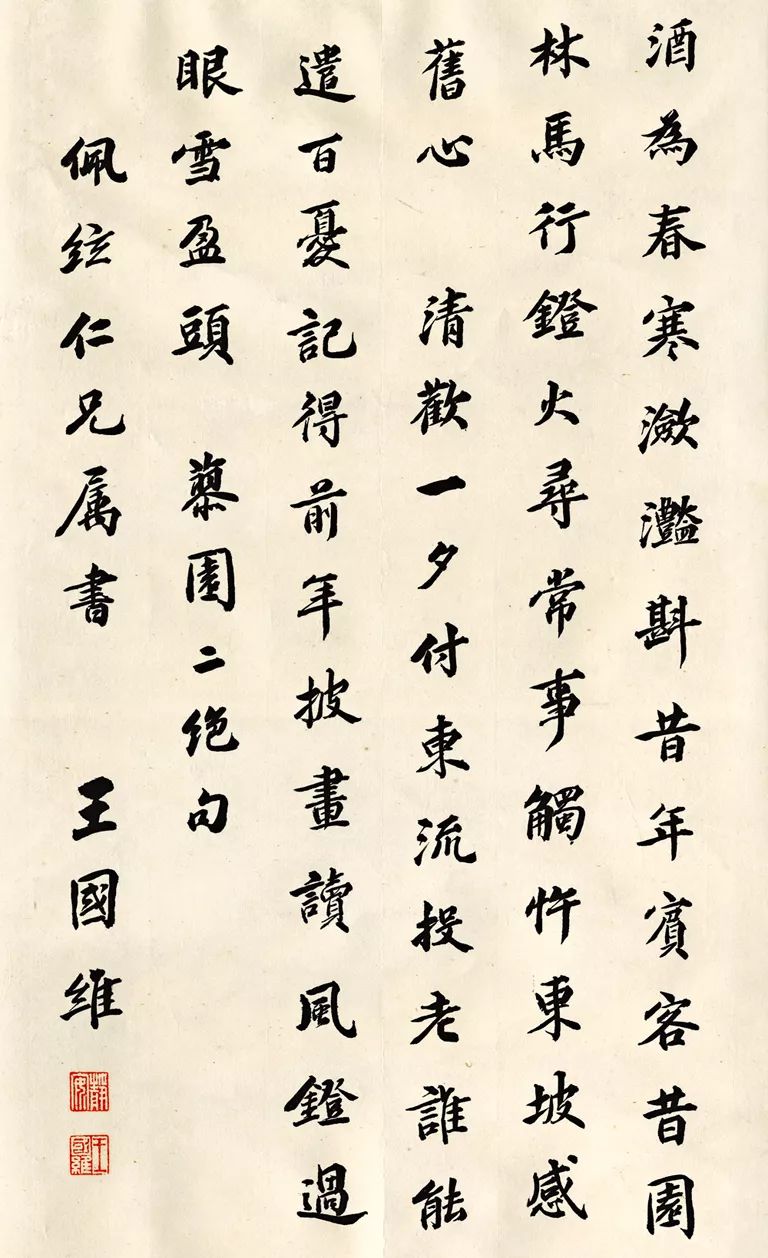 酒為春寒潋灩斟昔年賓客昔園
林馬行鐙火尋常事觸忤東坡感
舊心 清歡一夕付東流投老誰能
遣百憂記得前年披畫讀風鐙過
眼雪盈頭 摹園二绝句
佩紘仁兄属書 王國維
靜安
王國維